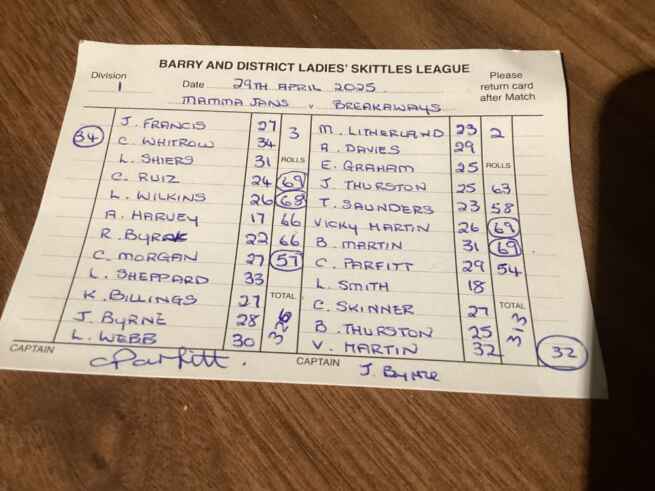 BARRY AND DISTRICT LADIES' SKITTLES LEAGUE
Division 1
Date 29TH APRIL 2025
Please
return card
after Match
MAMMA JANS v BREAKAWAYS
J. FRANCIS 27 3
34 C. WHITROW 34
L. SHIERS 31 ROLLS
C. RUIZ 24 69
L. WILKINS 26 68
A. HARVEY 17 66
R. BYRNE 22 66
C. MORGAN 27 57
L. SHEPPARD 33
K. BILLINGS 27 TOTAL
J. BYRNE 28 326
L. WEBB 30
M. LITHERLAND 23 2
A. DAVIES 29
E. GRAHAM 25 ROLLS
J. THURSTON 25 63
T. SAUNDERS 23 58
VICKY MARTIN 26 69
B. MARTIN 31 69
C. PARFITT 29 54
L. SMITH 18
C. SKINNER 27 TOTAL
B. THURSTON 25 313
V. MARTIN 32 32
CAPTAIN CParfitt.
CAPTAIN J. Byrne